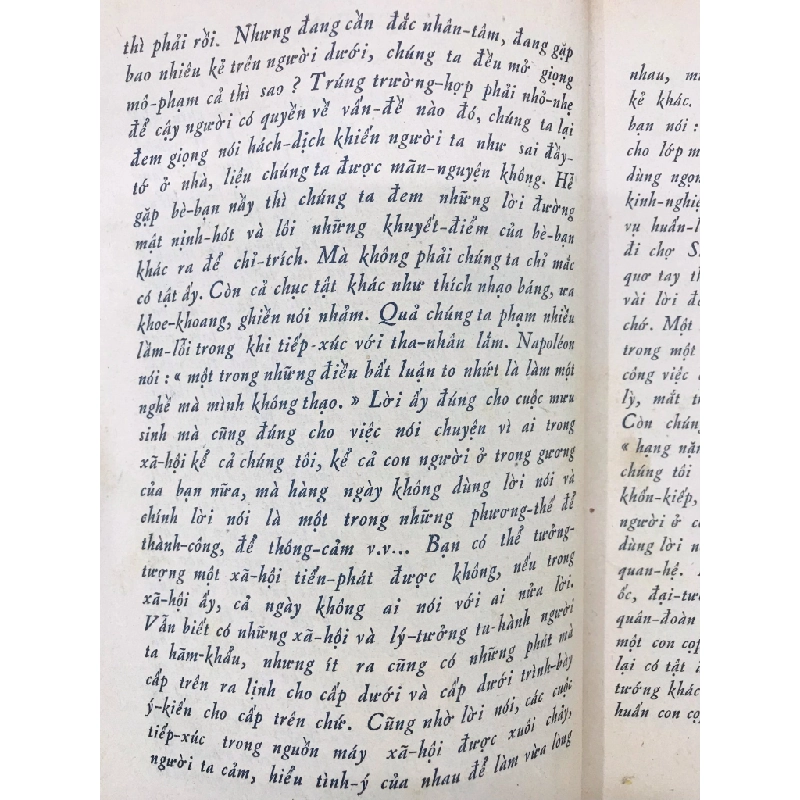 thì phải rồi. Nhưng đang cần đắc nhân-tâm, đang gặp
bao nhiêu kẻ trên người dưới, chúng ta đều mở giọng
mô-phạm cả thì sao ? Trúng trường-hợp phải nhỏ-nhẹ
để cậy người có quyền về vấn-đề nào đó, chúng ta lại
đem giọng nói hách-dịch khiến người ta như sai đầy-
tớ ở nhà, liệu chúng ta được mãn-nguyện không. Hễ
gặp bè-bạn nầy thì chúng ta đem những lời đường
mật nịnh-hót và lôi những khuyết-điểm của bè-bạn
khác ra để chỉ-trích. Mà không phải chúng ta chỉ mắc
có tật ấy. Còn cả chục tật khác như thích nhạo báng, ưa
khoe-khoang, ghiền nói nhảm. Quả chúng ta phạm nhiều
lầm-lỗi trong khi tiếp-xúc với tha-nhân lắm. Napoléon
nói : « một trong những điều bất luận to nhứt là làm một
nghề mà mình không thạo. » Lời ấy đúng cho cuộc mưu
sinh mà cũng đúng cho việc nói chuyện vì ai trong
xã-hội kể cả chúng tôi, kể cả con người ở trong gương
của bạn nữa, mà hàng ngày không dùng lời nói và
chính lời nói là một trong những phương-thế để
thành-công, để thông-cảm v.v... Bạn có thể tưởng-
tượng một xã-hội tiến-phát được không, nếu trong
xã-hội ấy, cả ngày không ai nói với ai nửa lời.
Vẫn biết có những xã-hội và lý-tưởng tu-hành người
ta hãm-khẩu, nhưng ít ra cũng có những phút mà
cấp trên ra lịnh cho cấp dưới và cấp dưới trình-bày
ý-kiến cho cấp trên chứ. Cũng nhờ lời nói, các cuộc
tiếp-xúc trong nguồn máy xã-hội được xuôi chảy,
người ta cảm, hiểu tình-ý của nhau để làm vừa lòng
nhau,
kẻ khác.
bạn nói :
cho lớp
dùng
kinh-nghiệ
vụ huấn-
đi chợ S
quơ tay
vài lời
chớ. Một
trong một
công việc
lý, mất
Còn chúng
« hạng
chúng tôi
khốn-kiếp,
người ở
dùng lời
quan-hệ.
ốc, đại-
quân-đoàn
một con cọp
lại có tật
tướng khác
huấn con